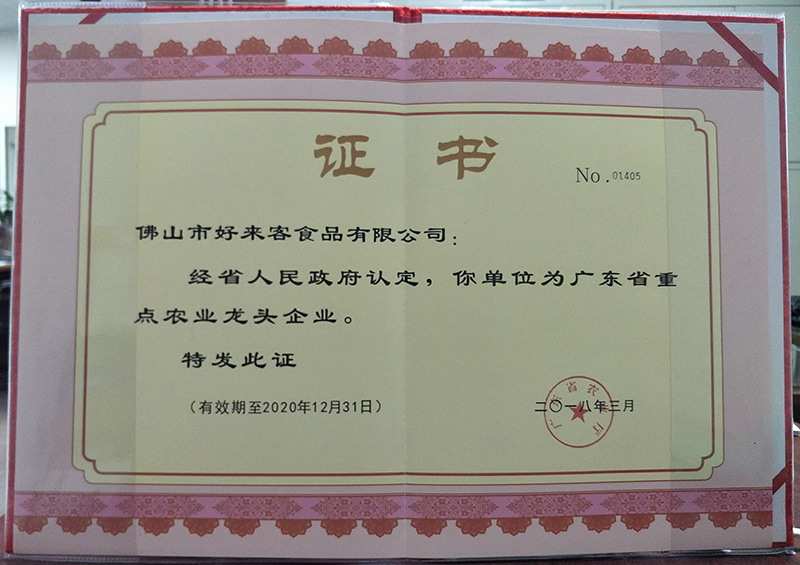 证 书
No.01405
佛山市好来客食品有限公司：
经省人民政府认定，你单位为广东省重
点农业龙头企业。
特发此证
（有效期至2020年12月31日）
二〇一八年三月
广东省农业厅